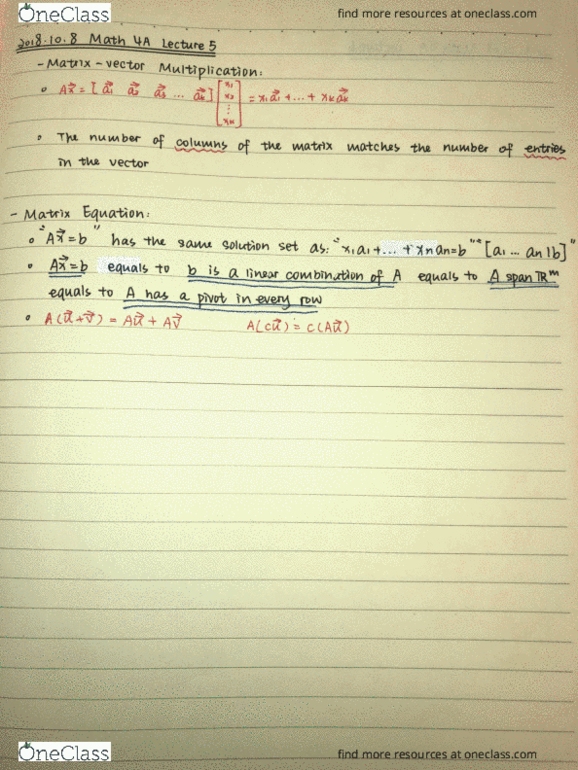 OneClass
find more resources at oneclass.com
2018.10.8 Math 4A Lecture 5
- Matrix-vector Multiplication:
∘ Ax⃗ = [ a⃗₁ a⃗₂ a⃗₃ ... a⃗ₖ ] [x₁ x₂ ⋮ xₖ] = x₁a⃗₁ + ... + xₖa⃗ₖ
∘ The number of columns of the matrix matches the number of entries
in the vector
- Matrix Equation:
∘ "Ax⃗ = b" has the same solution set as: "x₁a₁ + ... + xₙaₙ = b" "[a₁ ... aₙ | b]"
∘ Ax⃗ = b equals to b is a linear combination of A equals to A span ℝᵐ
equals to A has a pivot in every row
∘ A(u⃗ + v⃗) = Au⃗ + Av⃗ A(cu⃗) = c(Au⃗)
OneClass
find more resources at oneclass.com